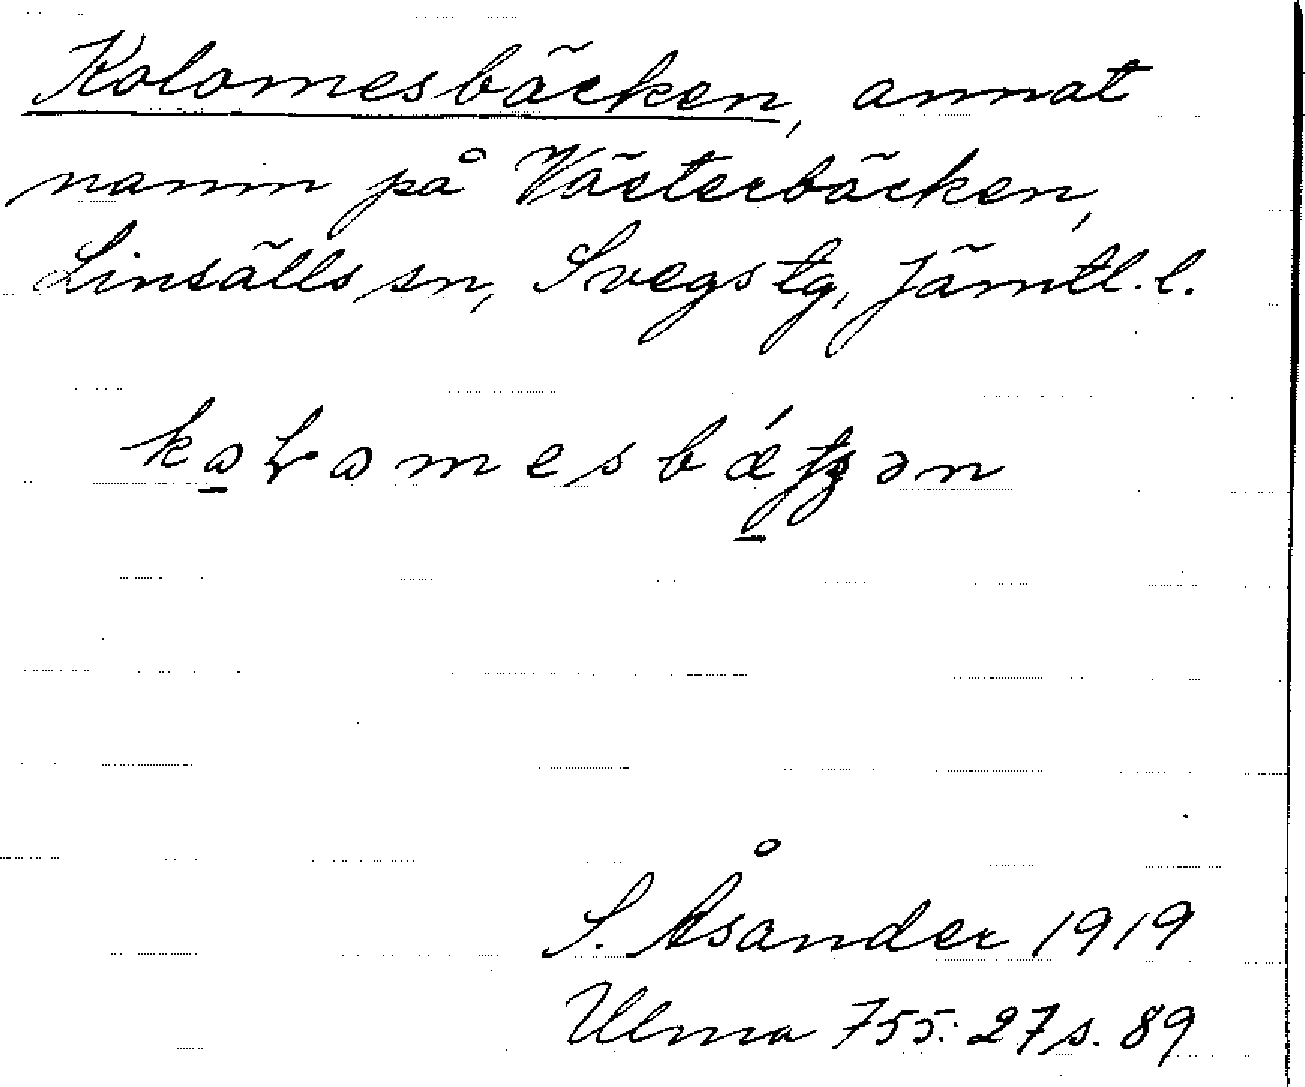 Kolomesbäcken, annat
namn på Västerbäcken,
Linsälls sn, Svegs tg, Jämtl. l.
S. Åsander 1919
Ulma 755:27 s. 89